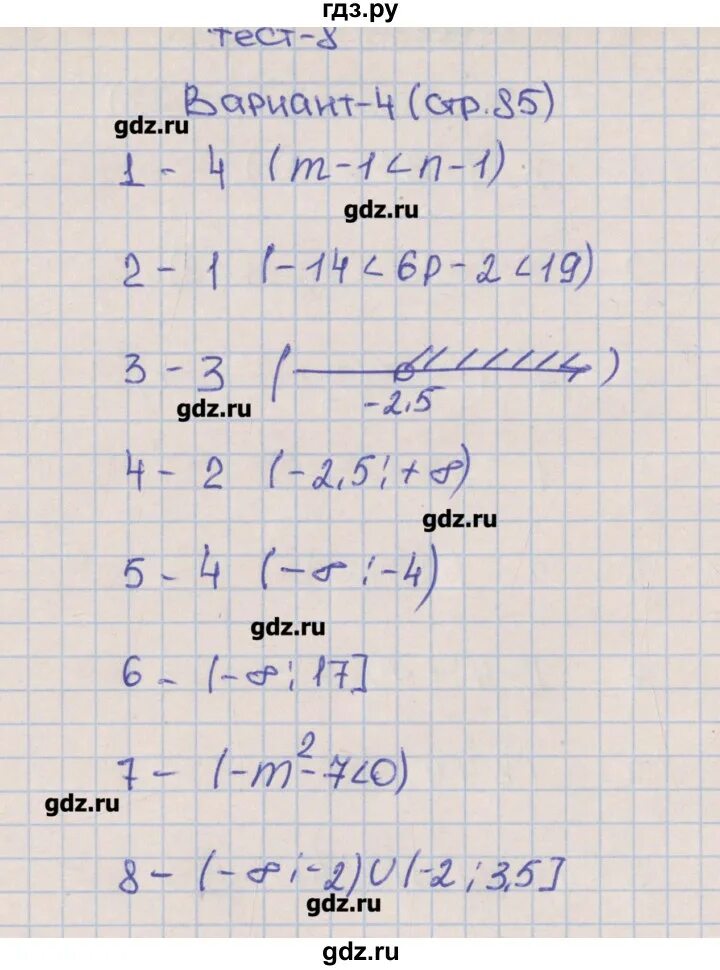 гдз.ру
тест-8
Вариант-4 (стр.85)
gdz.ru
1 - 4 (m-1<n-1)
gdz.ru
2 - 1 (-14<6p-2<19)
3 - 3 ( -2,5 )
gdz.ru
4 - 2 (-2,5;+∞)
gdz.ru
5 - 4 (-∞;-4)
gdz.ru
6 - (-∞;17]
7 - (-m²-7<0)
gdz.ru
8 - (-∞;-2)∪(-2;3,5]
gdz.ru
gdz.ru